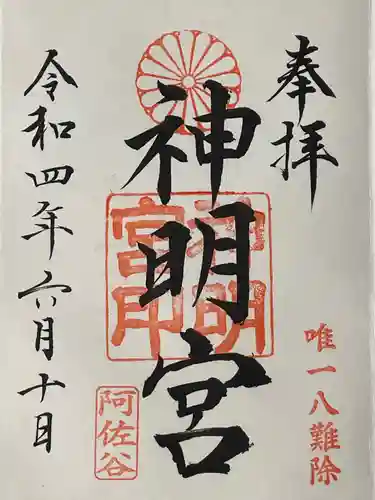 奉拝
唯一八難除
神明宮
神明宮印
阿佐谷
令和四年六月十日